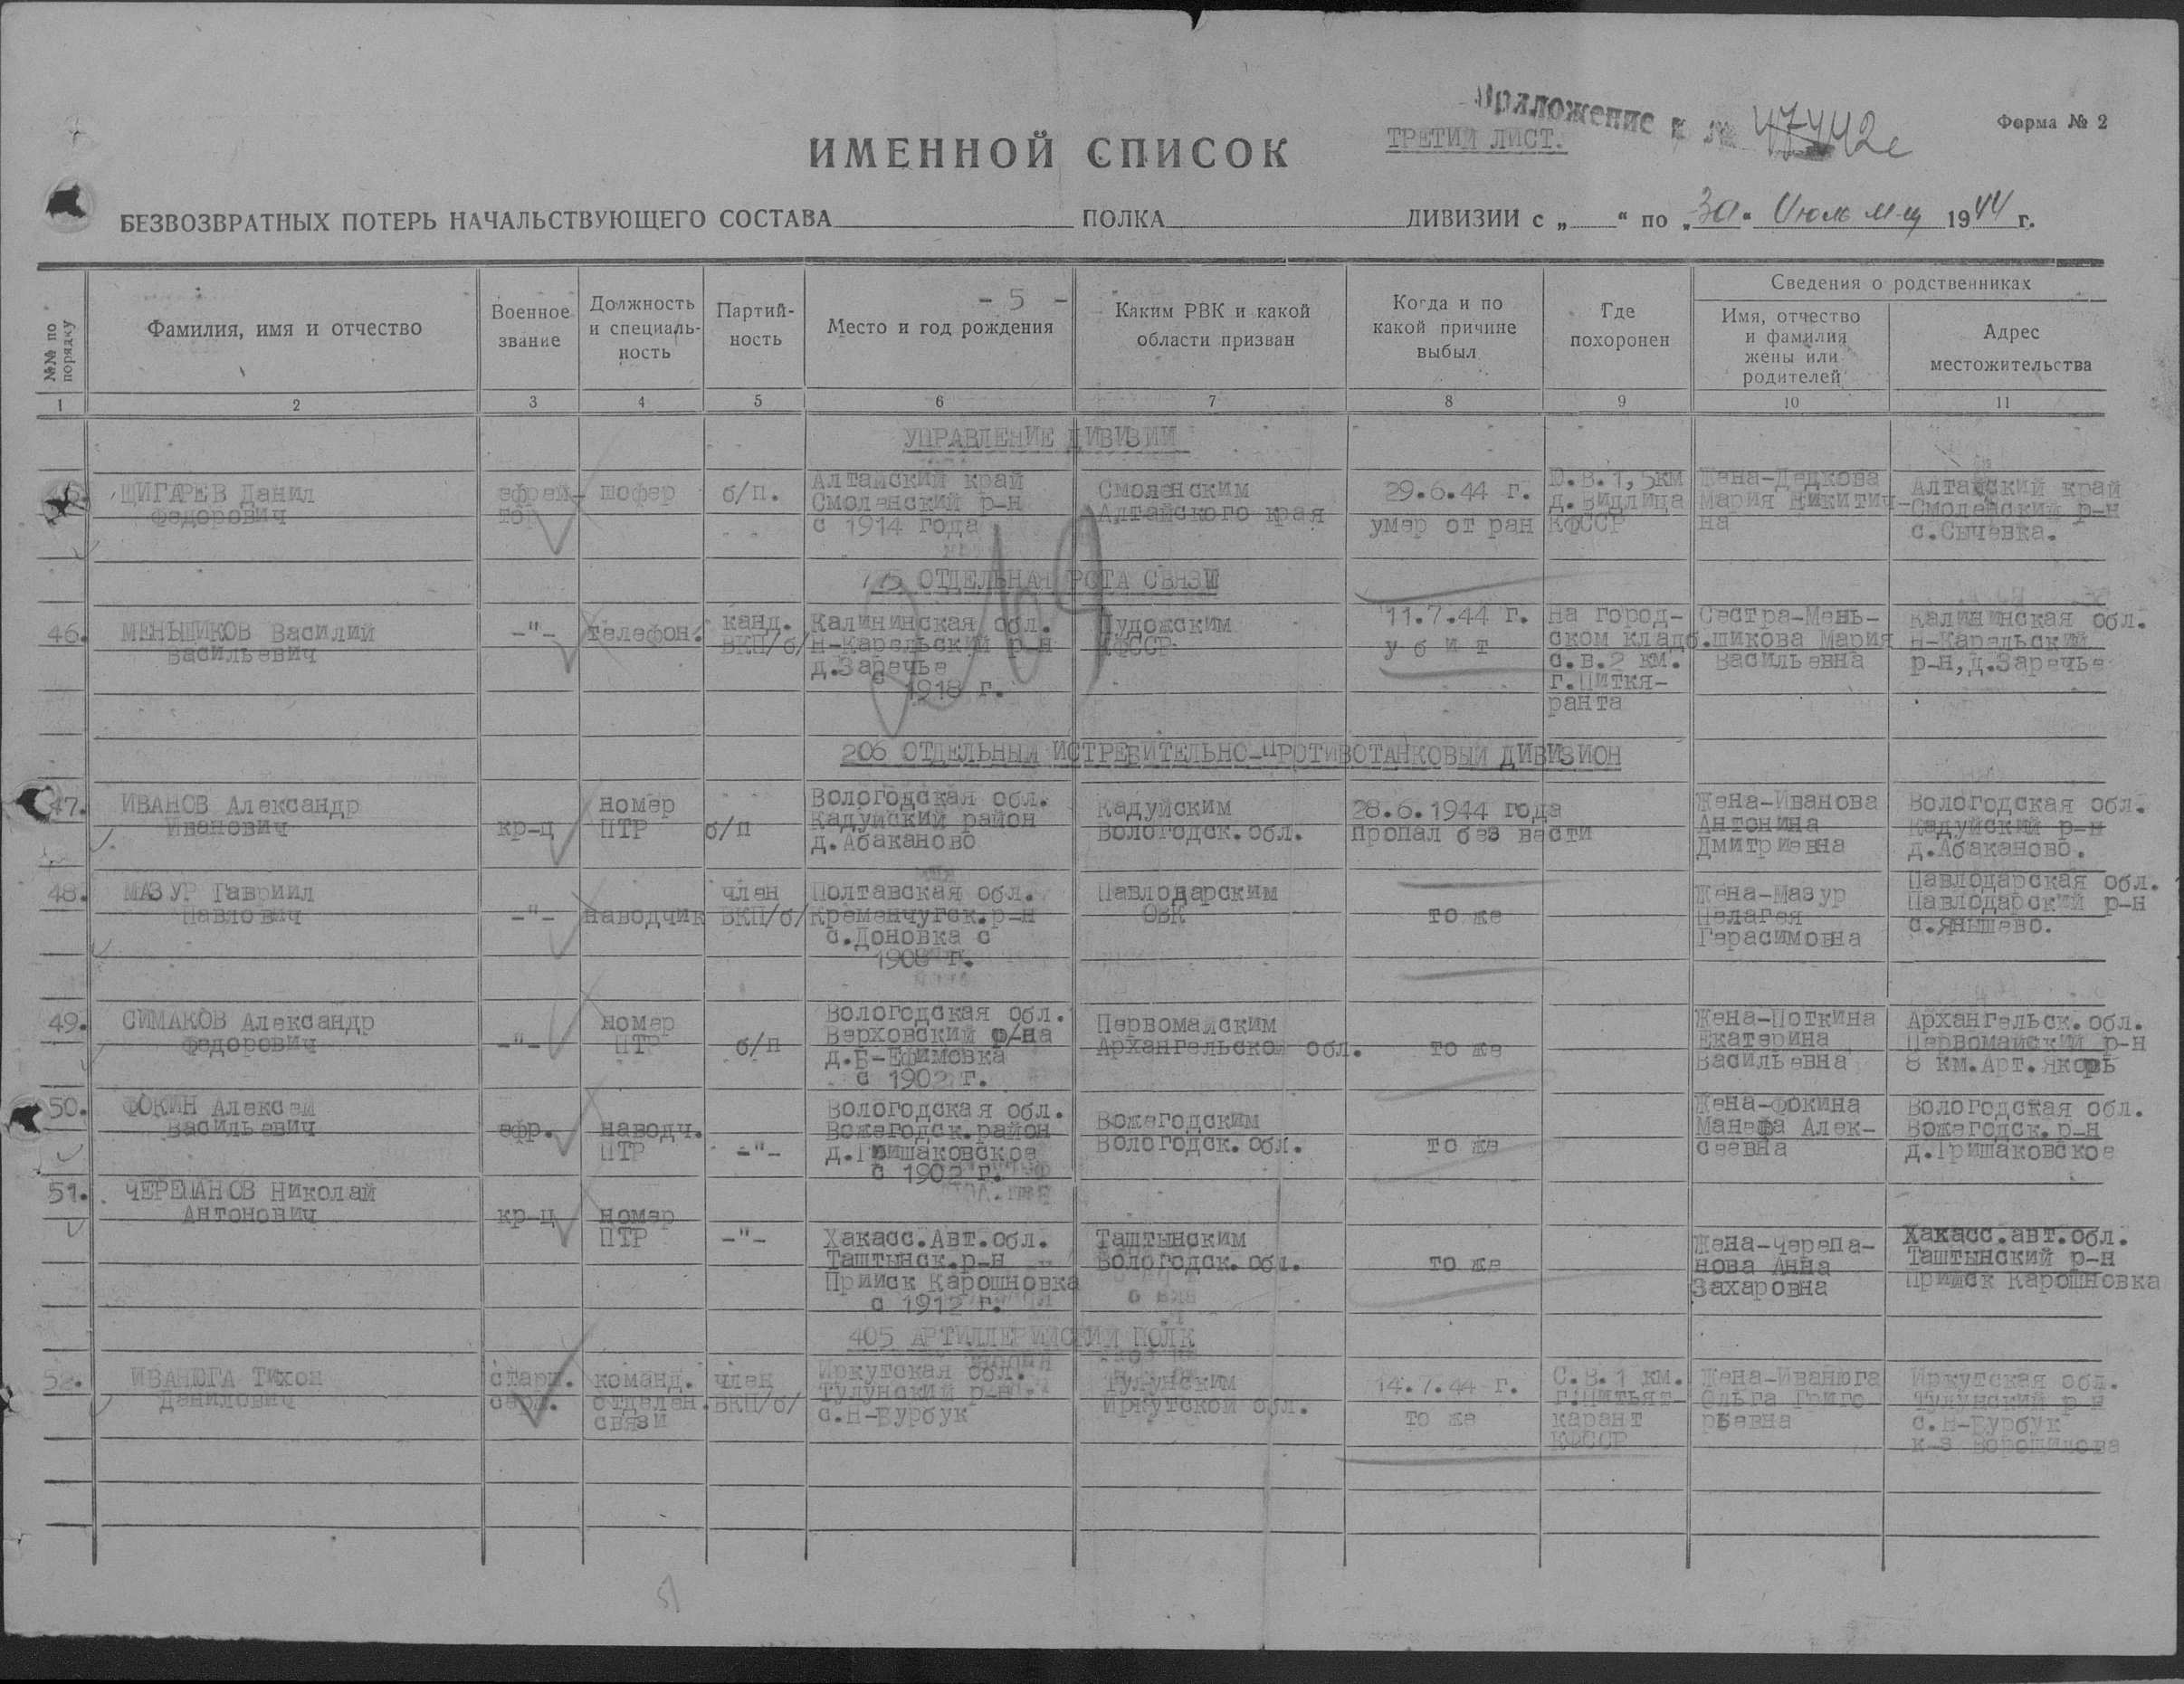 Приложение к № 47442с
Форма № 2
ТРЕТИЙ ЛИСТ.
ИМЕННОЙ СПИСОК
БЕЗВОЗВРАТНЫХ ПОТЕРЬ НАЧАЛЬСТВУЮЩЕГО СОСТАВА ПОЛКА ДИВИЗИИ с „ “ по „за“ Июль м-ц 1944 г.
№№ по порядку
Фамилия, имя и отчество
Военное звание
Должность и специальность
Партийность
- 5 -
Место и год рождения
Каким РВК и какой области призван
Когда и по какой причине выбыл
Где похоронен
Сведения о родственниках
Имя, отчество и фамилия жены или родителей
Адрес местожительства
1 2 3 4 5 6 7 8 9 10 11
УПРАВЛЕНИЕ ДИВИЗИИ
ЩИГАРЕВ Данил
Федорович
ефрей-
тор
шофер
б/п.
Алтайский край
Смоленский р-н
с 1914 года
Смоленским
Алтайского края
29.6.44 г.
умер от ран
Ю.В.1,5км
д.Видлица
КФССР
Жена-Дедкова
Мария Никитич-
на
Алтайский край
Смоленский р-н
с.Сычевка.
ОТДЕЛЬНАЯ РОТА СВЯЗИ
46.
МЕНЬШИКОВ Василий
Васильевич
-"-
телефон.
канд.
ВКП/б/
Калининская обл.
Н-Карельский р-н
д.Заречье
с 1918 г.
Пудожским
КФССР
11.7.44 г.
у б и т
На город-
ском кладб.
с.в.2 км.
г.Питкя-
ранта
Сестра-Мень-
шикова Мария
Васильевна
Калининская обл.
Н-Карельский
р-н,д.Заречье
206 ОТДЕЛЬНЫЙ ИСТРЕБИТЕЛЬНО-ПРОТИВОТАНКОВЫЙ ДИВИЗИОН
47.
ИВАНОВ Александр
Иванович
кр-ц
номер
ПТР
б/п
Вологодская обл.
Кадуйский район
д.Абаканово
Кадуйским
Вологодск.обл.
28.6.1944 года
пропал без вести
Жена-Иванова
Антонина
Дмитриевна
Вологодская обл.
Кадуйский р-н
д.Абаканово.
48.
МАЗУР Гавриил
Павлович
-"-
наводчик
член
ВКП/б/
Полтавская обл.
Кременчугск.р-н
с.Доновка с
1908 г.
Павлодарским
ОВК
то же
Жена-Мазур
Пелагея
Герасимовна
Павлодарская обл.
Павлодарский р-н
с.Янышево.
49.
СИМАКОВ Александр
Федорович
-"-
номер
ПТР
б/п
Вологодская обл.
Верховский р/на
д.Б-Ефимовка
с 1902 г.
Первомайским
Архангельской обл.
то же
Жена-Поткина
Екатерина
Васильевна
Архангельск.обл.
Первомайский р-н
8 км.Арт.Якорь
50.
ФОКИН Алексей
Васильевич
ефр.
наводч.
ПТР
-"-
Вологодская обл.
Вожегодск.район
д.Гришаковское
с 1902 г.
Вожегодским
Вологодск.обл.
то же
Жена-Фокина
Манефа Алек-
сеевна
Вологодская обл.
Вожегодск.р-н
д.Гришаковское
51.
ЧЕРЕПАНОВ Николай
Антонович
кр-ц
номер
ПТР
-"-
Хакасс.Авт.обл.
Таштынск.р-н
Прииск Карошновка
с 1912 г.
Таштынским
Вологодск.обл.
то же
Жена-Черепа-
нова Анна
Захаровна
Хакасс.авт.обл.
Таштынский р-н
Прииск Карошновка
405 АРТИЛЛЕРИЙСКИЙ ПОЛК
52.
ИВАНЮГА Тихон
Данилович
старш.
серж.
команд.
отделен.
связи
член
ВКП/б/
Иркутская обл.
Тулунский р-н
с.Н-Бурбук
Тулунским
Иркутской обл.
14.7.44 г.
то же
С.В.1 км.
г.Питьят-
карант
КФССР
Жена-Иванюга
Ольга Григо-
рьевна
Иркутская обл.
Тулунский р-н
с.Н-Бурбук
к-з Ворошилова